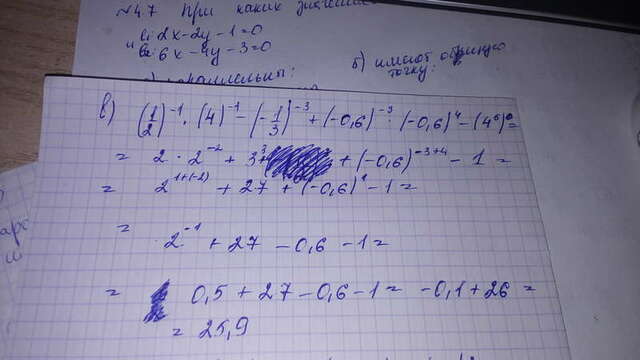 №47 При каких
l: 2x-2y-1=0
6x-4y-3=0
б) имеют
точку:
в) (1/2)^-1 · (4)^-1 - (-1/3)^-3 + (-0,6)^-3 · (-0,6)^4 - (4^6)^0 =
= 2 · 2^-2 + 3^3 + (-0,6)^-3+4 - 1 =
= 2^1+(-2) + 27 + (-0,6)^1 - 1 =
= 2^-1 + 27 - 0,6 - 1 =
= 0,5 + 27 - 0,6 - 1 = -0,1 + 26 =
= 25,9